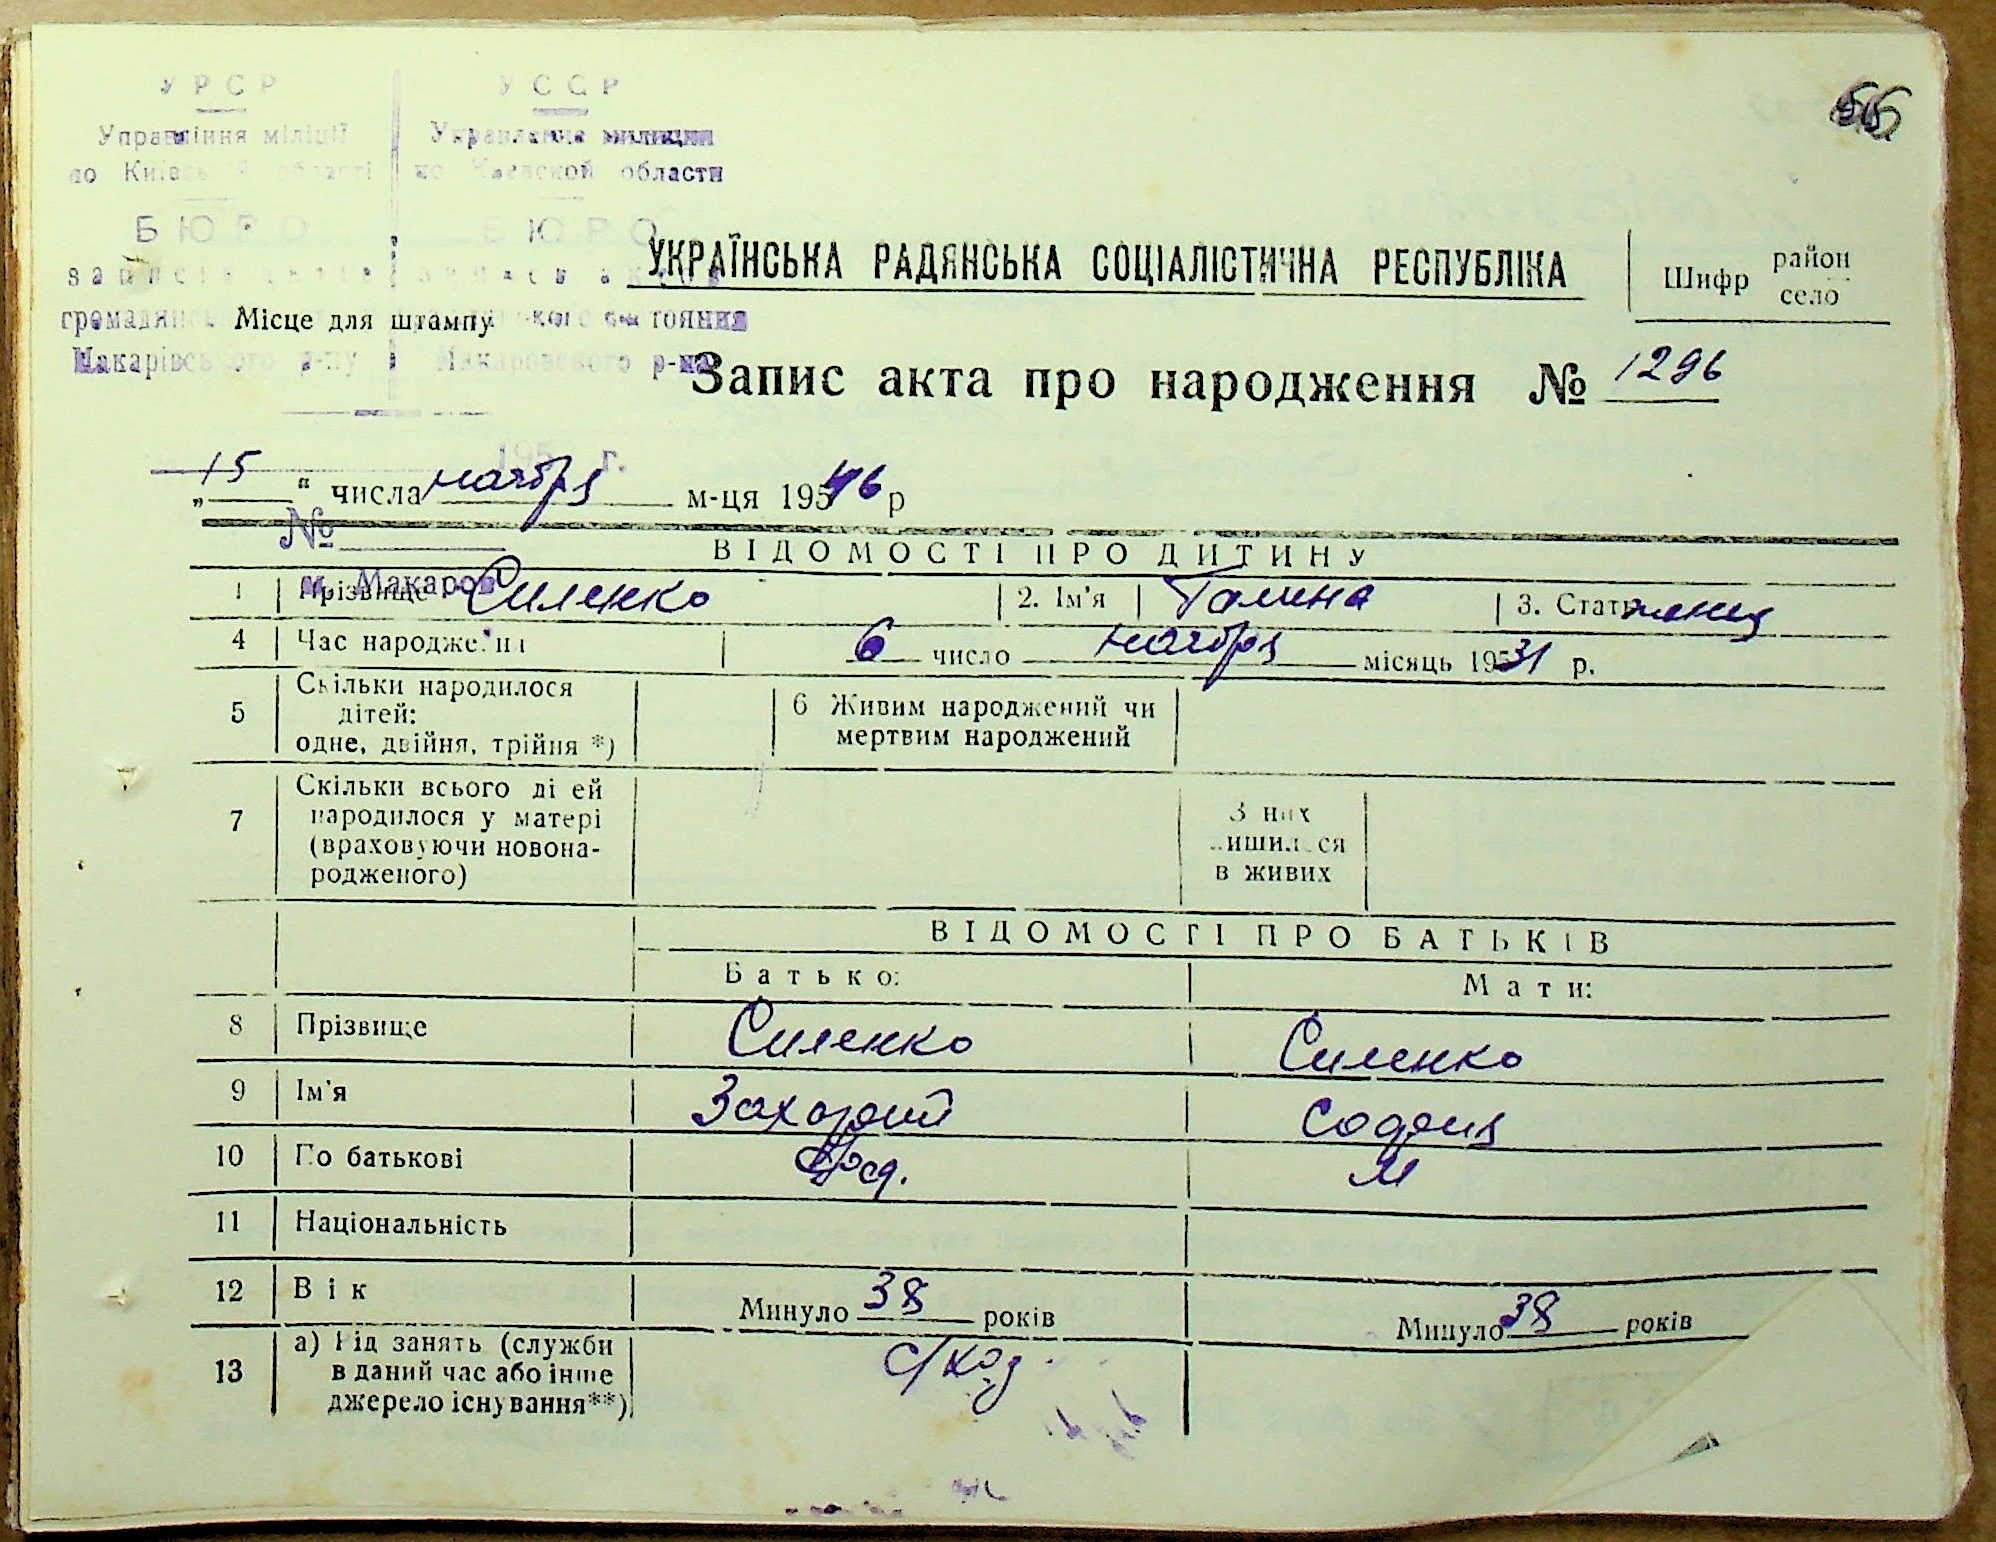 УРСР
Управління міліції
по Київській області
БЮРО
УССР
Управление милиции
по Киевской области
БЮРО
Макарівського р-ну
Макаровского р-на
195 г.
№
м. Макаров
Місце для штампу
УКРАЇНСЬКА РАДЯНСЬКА СОЦІАЛІСТИЧНА РЕСПУБЛІКА
Шифр район село
Запис акта про народження № 1296
„15“ числа ноября м-ця 1946 р
ВІДОМОСТІ ПРО ДИТИНУ
1 Прізвище Силенко 2. Ім'я Галина 3. Стать
4 Час народження 6 число ноября місяць 1931 р.
5 Скільки народилося дітей: одне, двійня, трійня *) 6 Живим народжений чи мертвим народжений
7 Скільки всього дітей народилося у матері (враховуючи новонародженого) З них лишилося в живих
ВІДОМОСТІ ПРО БАТЬКІВ
Батько: Мати:
8 Прізвище Силенко Силенко
9 Ім'я Захарий София
10 По батькові М
11 Національність
12 Вік Минуло 38 років Минуло 38 років
13 а) Рід занять (служби в даний час або інше джерело існування**) с/хоз.